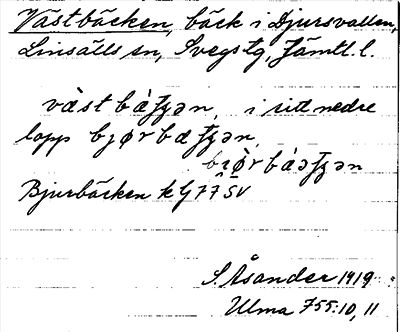 Västbäcken, bäck i Djursvallen,
Linsälls sn, Svegs tg, Jämtl. l.
västbäʃʒən, i sitt nedre
lopp bjørbæʃʒən,
Bjurbäcken k G 77 SV
S Åsander 1919
Ulma 755:10, 11